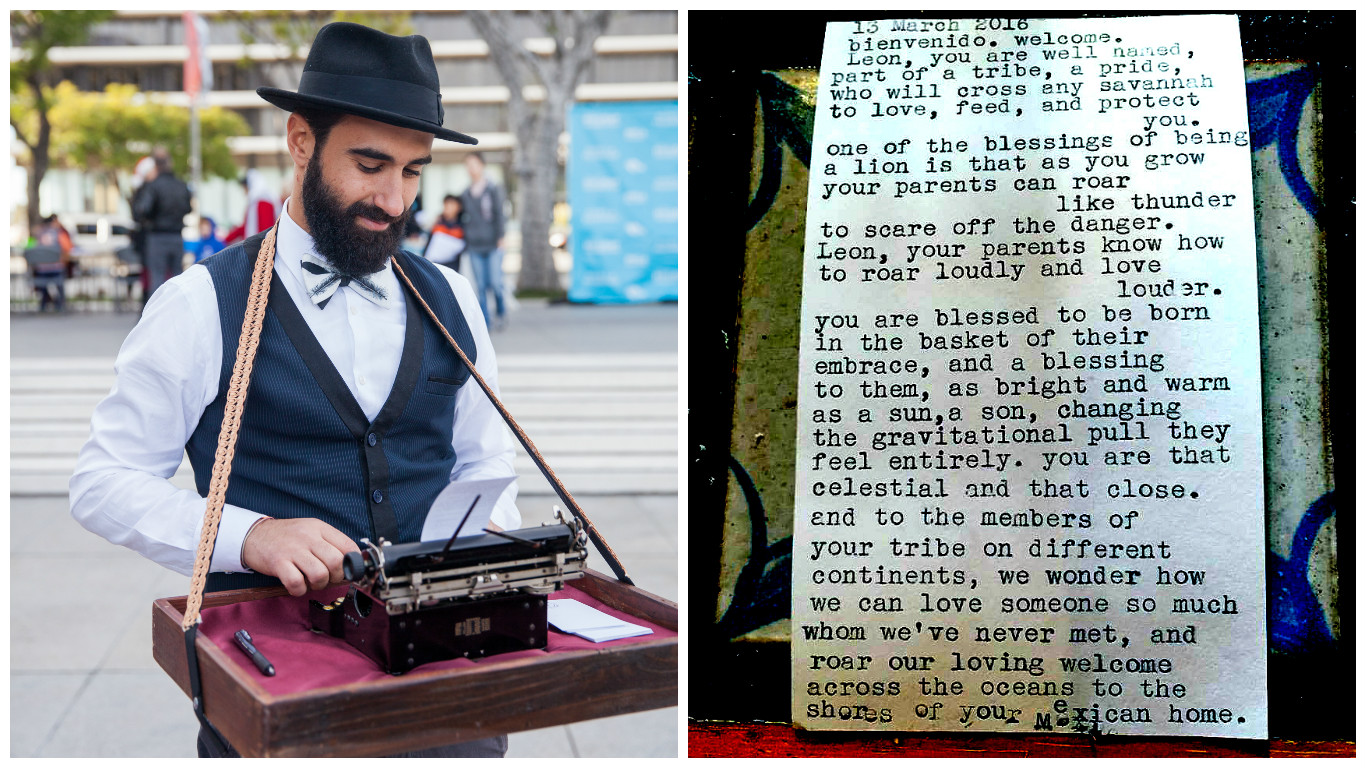 13 March 2016
bienvenido. welcome.
Leon, you are well named,
part of a tribe, a pride,
who will cross any savannah
to love, feed, and protect
you.
one of the blessings of being
a lion is that as you grow
your parents can roar
like thunder
to scare off the danger.
Leon, your parents know how
to roar loudly and love
louder.
you are blessed to be born
in the basket of their
embrace, and a blessing
to them, as bright and warm
as a sun,a son, changing
the gravitational pull they
feel entirely. you are that
celestial and that close.
and to the members of
your tribe on different
continents, we wonder how
we can love someone so much
whom we've never met, and
roar our loving welcome
across the oceans to the
shores of your Mexican home.